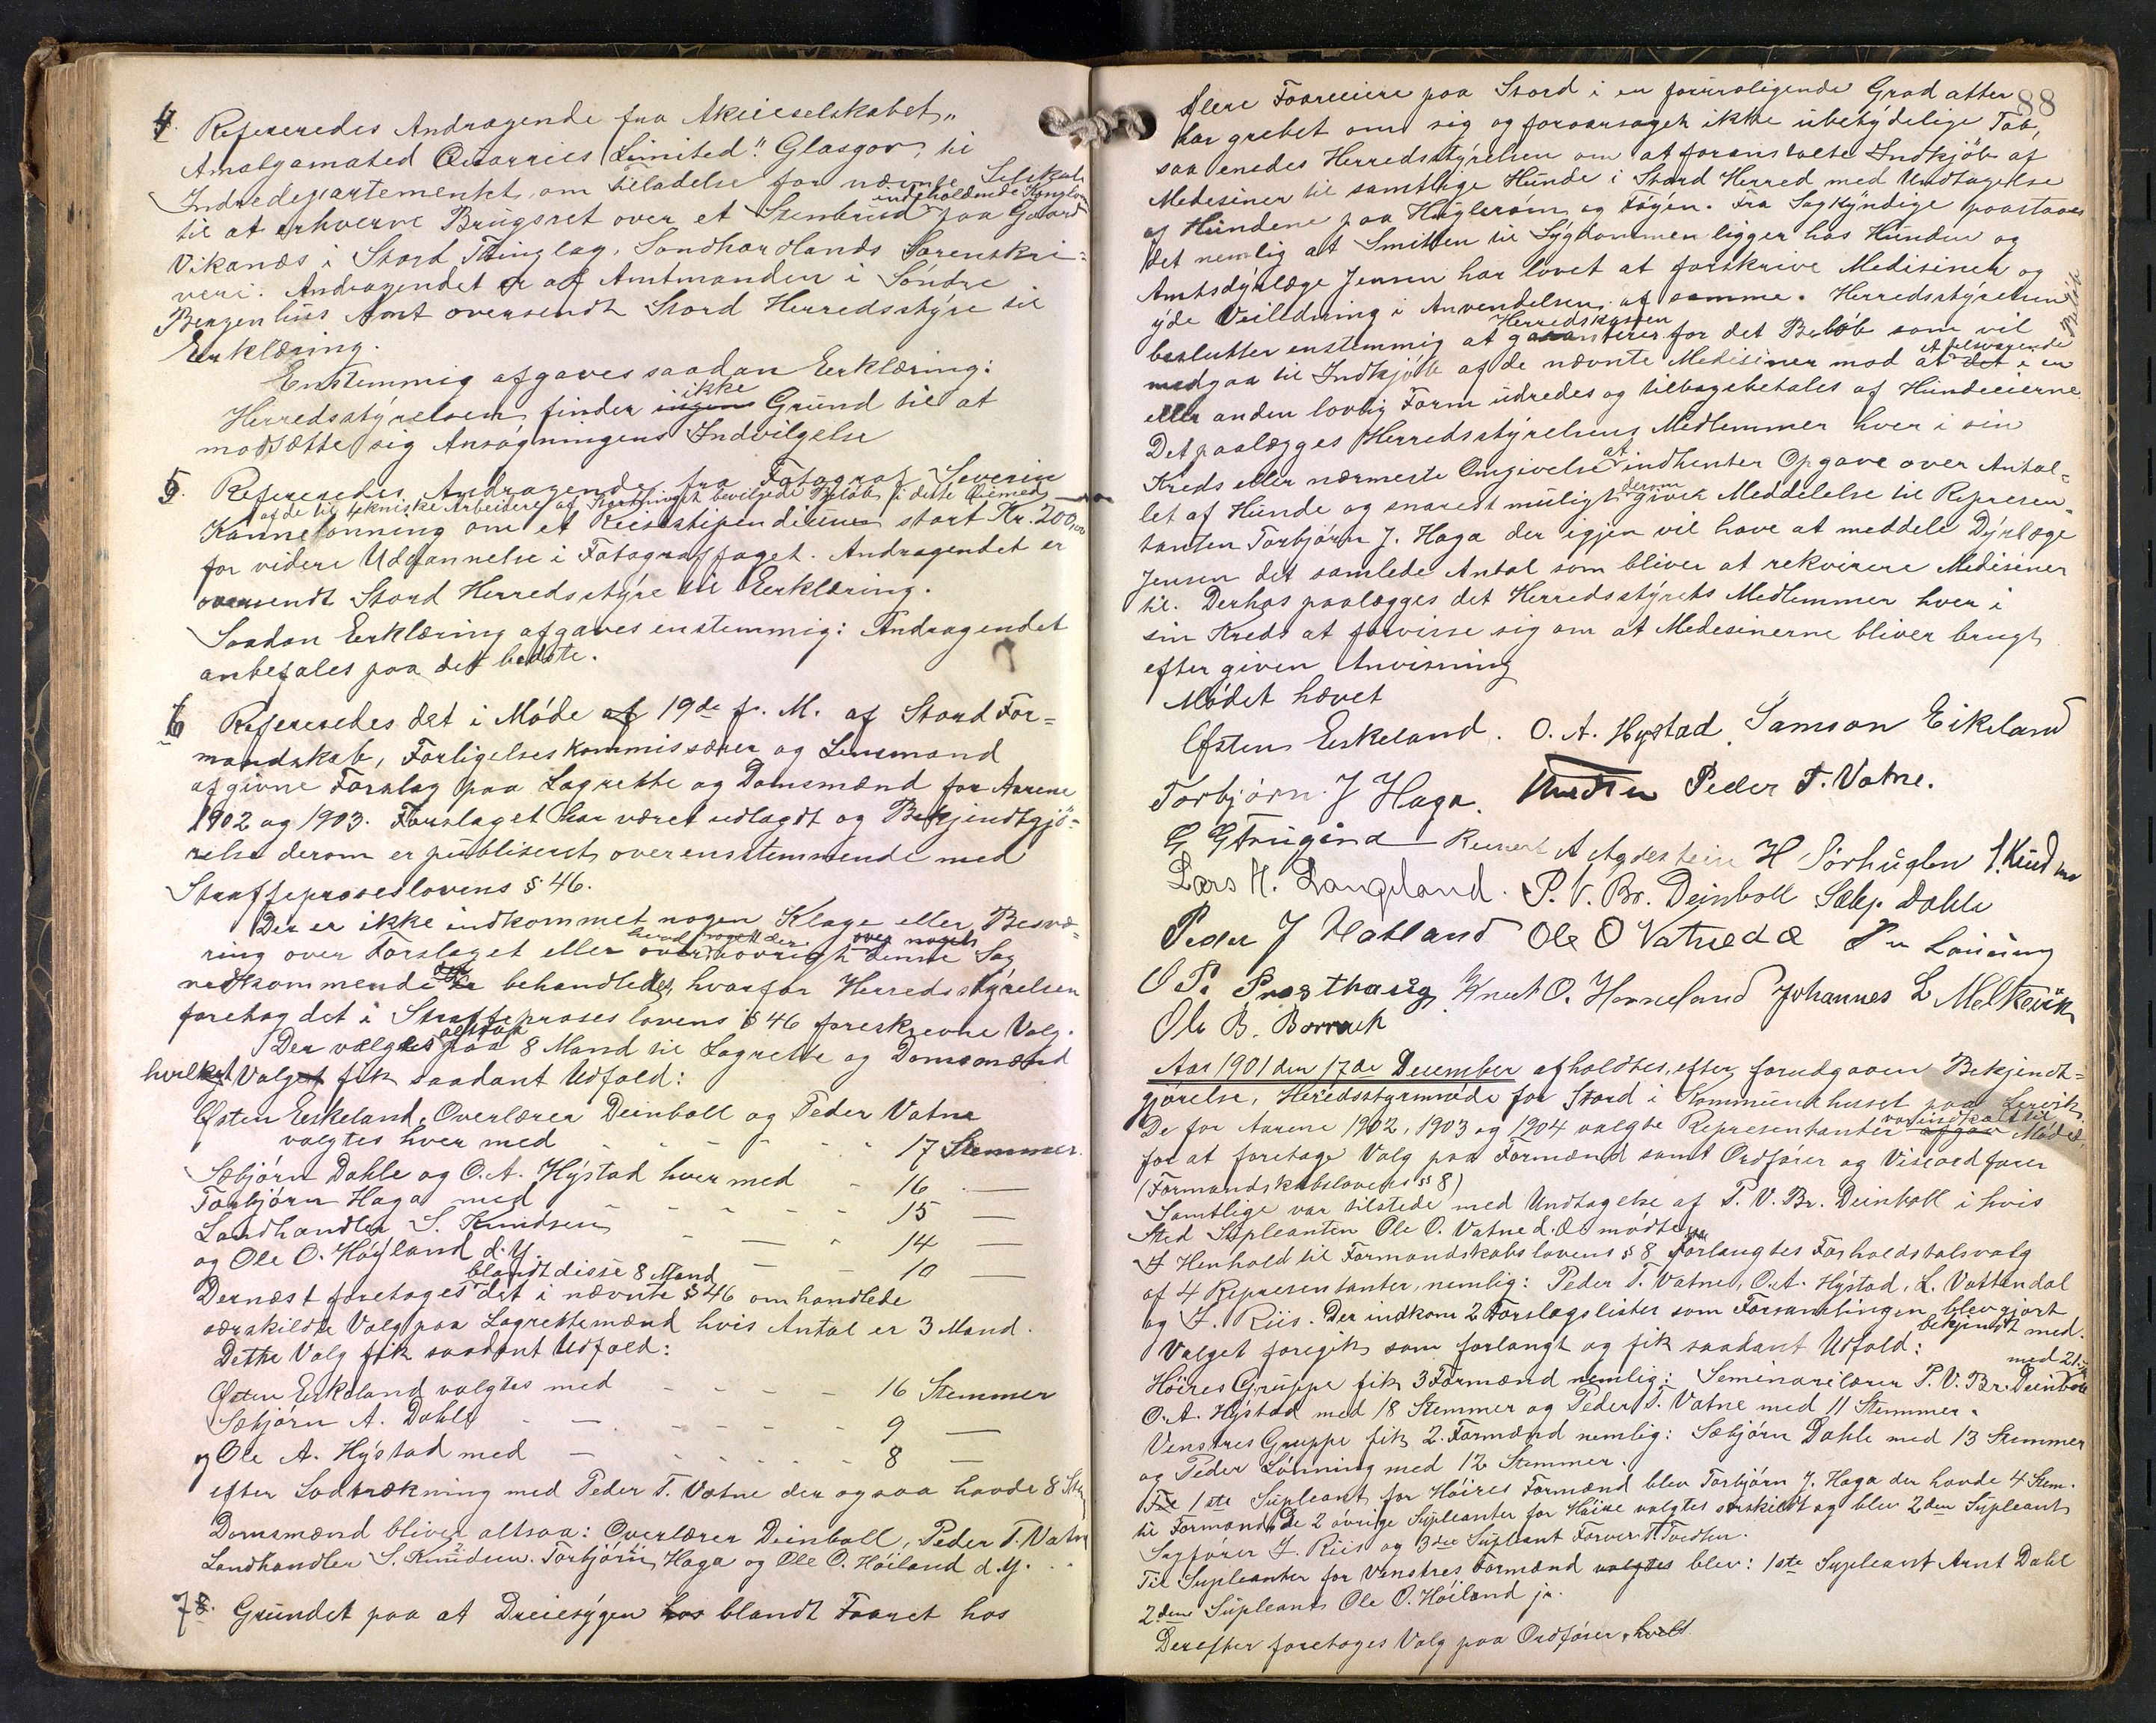 4. Refereredes Andragende fra Aktieselskabet „
Amalgamated Quarries Limited" Glasgow, til
Indredepartementet, om tiladelse for nævnte Selskab
indeholdende Konglom
til at erhverve Brugsret over et Stenbrud paa Gaard
Vikanæs i Stord Thinglag, Søndhordlands Sorenskri-
veri. Andragendet er af Amtmanden i Søndre
Bergenhus Amt oversendt Stord Herredsstyre til
Erklæring.
Enstemmig afgaves saadan Erklæring:
ikke
Herredsstyrelsen finder ingen Grund til at
modsætte sig Ansøgningens Indvilgelse
5. Refereredes Andragende fra Fotograf Severin
af de til tekniske Arbeidere af Storthinget bevilgede Beløb i dette Øiemed
Kannelønning om et Reisestipendium stort Kr. 200,00
for videre Uddannelse i Fotograffaget. Andragendet er
oversendt Stord Herredsstyre til Erklæring.
Saadan Erklæring afgaves enstemmig: Andragendet
anbefales paa det bedste.
6 Refereredes det i Møde af 19de f. M. af Stord For=
mandskab, Forligelseskommissærer og Lensmand
afgivne Forslag paa Lagrette og Domsmænd for Aarene
1902 og 1903. Forslaget har været udlagdt og Bekjendtgjø-
relse derom er publiseret overensstemmende med
Straffeproseslovens § 46.
Der er ikke indkommet nogen Klage eller Besvæ-
hvad noget der over noget
ring over Forslaget eller over iøvrigt denne Sag
vedkommende der behandledes, hvorfor Herredsstyrelsen
foretog det i Straffeproseslovens § 46 foreskrevne Valg.
altsaa
Der vælges paa 8 Mand til Lagrette og Domsmænd
hvilket Valget fik saadant Udfald:
Østen Eskeland, Overlærer Deinboll og Peder Vatne
valgtes hver med - - - - - 17 Stemmer.
Sæbjørn Dahle og O. A. Hystad hver med - 16 —
Torbjørn Haga med - - - - - 15 —
Landhandler S. Knudsen - — - 14 —
og Ole O. Høyland d. y. — - 10 —
blandt disse 8 Mand
Dernæst foretoges det i nævnte § 46 omhandlede
særskildte Valg paa Lagrettemænd hvis Antal er 3 Mand.
Dette Valg fik saadant Udfald:
Østen Eskeland valgtes med - - - - 16 Stemmer
Sæbjørn A. Dahle - — - - - - 9 —
og Ole A. Hystad med — - - - - - 8 —
efter Lodtrækning med Peder T. Vatne der ogsaa havde 8 Stem
Domsmænd bliver altsaa: Overlærer Deinboll, Peder T. Vatne
Landhandler S. Knudsen. Torbjørn Haga og Ole O. Høiland d. y.
7 8. Grundet paa at Dreiesygen hos blandt Faaret hos
88
flere Faareiere paa Stord i en foruroligende Grad atter
har grebet om sig og foraarsaget ikke ubetydelige Tab,
saa enedes Herredsstyrelsen om at foranstalte Indkjøb af
Medesiner til samtlige Hunde i Stord Herred med Undtagelse
af Hundene paa Huglerøm og Føyen. Fra Sagkyndige paastaaes
det nemlig at Smitten til Sygdommen ligger hos Hunden og
Amtsdyrlæge Jensen har lovet at forskrive Medisinen og
yde Veiledning i Anvendelsen af samme. Herredsstyrelsen
Herredskassen
beslutter enstemmig at garanterer for det Beløb som vil
Afelvagende
medgaa til Indkjøb af de nævnte Medisiner mod at det i en
eller anden lovlig Form udredes og tilbagebetales af Hundeeierne
Det paalægges Herredsstyrelsens Medlemmer hver i sin
Kreds eller nærmeste Omgivelse at indhenter Opgave over Antal-
derom
let af Hunde og snarest muligt giver Meddelelse til Represen-
tanten Torbjørn J. Haga der igjen vil have at meddele Dyrlæge
Jensen det samlede Antal som bliver at rekvirere Medisiner
til. Derhos paalægges det Herredsstyrets Medlemmer hver i
sin Kreds at forvisse sig om at Medesinerne bliver brugt
efter given Anvisning
Mødet hævet
Østen Eskeland. O. A. Hystad. Samson Eikeland
Torbjørn J Haga. Peder T. Vatne.
Reinert A Agdestein H Sørhuglen S. Knudsen
Lars H. Langeland. P. V. Br. Deinboll Sæbj. Dahle
Peder J Hatland Ole O Vatne d æ P Lønning
O P. Presthaug Knut O. Horneland Johannes L Melkevik
Ole B. Borrevik
Aar 1901 den 17de December afholdtes, efter forudgaaen Bekjendt-
gjørelse, Herredsstyrmøde for Stord i Kommunehuset paa Lervik.
var indkaldt til
De for Aarene 1902, 1903 og 1904 valgte Representanter afgav Mødet
for at foretage Valg paa Formænd samt Ordfører og Viseordfører
(Formandskabslovens § 8)
Samtlige var tilstede med Undtagelse af P. V. Br. Deinboll i hvis
Sted Supleanten Ole O. Vatne d. æ. mødte
I Henhold til Formandskabslovens § 8 forlangtes Forholdstalsvalg
af 4 Representanter, nemlig: Peder T. Vatne, O. A. Hystad, L. Vattendal
og J. Riis. Der indkom 2 Forslagslister som Forsamlingen blev gjort
bekjendt med.
Valget foregik som forlangt og fik saadant Udfald:
med 21
Høires Gruppe fik 3 Formænd nemlig: Seminarilærer P. V. Br. Deinboll
O. A. Hystad med 18 Stemmer og Peder T. Vatne med 11 Stemmer.
Venstres Gruppe fik 2 Formænd nemlig: Sæbjørn Dahle med 13 Stemmer
og Peder Lønning med 12 Stemmer.
Til 1ste Supleant for Høires Formænd blev Torbjørn J. Haga der havde 4 Stem.
til Formand. De 2 øvrige Supleanter for Høire valgtes særskildt og blev 2den Supleant
Sagfører J. Riis og 3die Supleant Farver H Tvedten.
Til Supleanter for Venstres Formænd valgtes blev: 1ste Supleant Arnt Dahl
2den Supleant Ole O. Høiland jr.
Derefter foretoges Valg paa Ordfører, hvilt